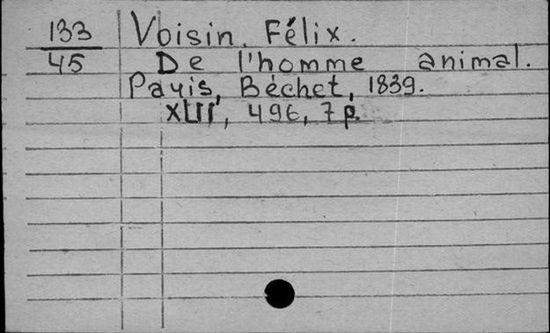 133
45
Voisin, Félix.
De l'homme animal.
Payis, Béchet, 1839.
XLII, 496, 7 p.